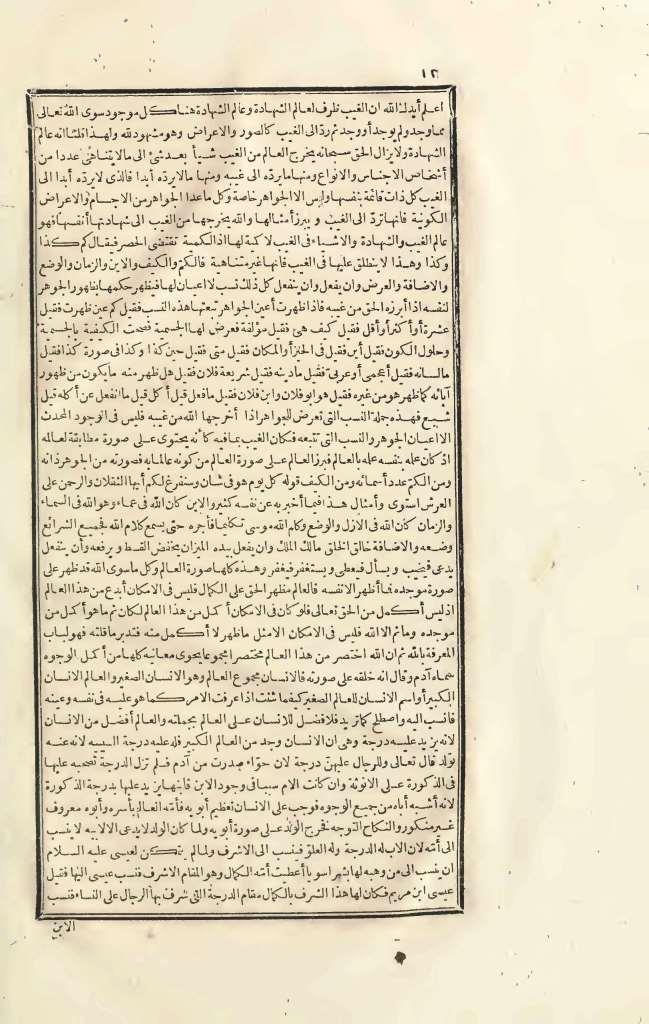 ١٢
اعلم أيدك الله ان الغيب ظرف لعالم الشهادة وعالم الشهادة هنا كل موجود سوى الله تعالى
مما وجد ولم يوجد أو وجد ثم ردّ الى الغيب كالصور والاعراض وهو مشهود لله ولهذا قلنا انه عالم
الشهادة ولا يزال الحق سبحانه يخرج العالم من الغيب شيأ بعد شئ الى ما لا يتناهى عددا من
أشخاص الاجناس والانواع ومنها ما يردّه الى غيبه ومنها ما لا يردّه أبدا فالذى لا يردّه أبدا الى
الغيب كل ذات قائمة بنفسها وليس الا الجواهر خاصة وكل ما عدا الجواهر من الاجسام والاعراض
الكونية فانها تردّ الى الغيب و يبرز أمثالها والله يخرجها من الغيب الى شهادتها أنفسها فهو
عالم الغيب والشهادة والاشياء فى الغيب لا كمية لها اذ الكمية تقتضى الحصر فيقال كم كذا
وكذا وهذا لا ينطلق عليها فى الغيب فانها غير متناهية فالكم والكيف والاين والزمان والوضع
والاضافة والعرض وان يفعل وان ينفعل كل ذلك نسب لا اعيان لها فيظهر حكمها بظهور الجوهر
لنفسه اذا أبرزه الحق من غيبه فاذا ظهرت أعين الجواهر تبعتها هذه النسب فقيل كم عين ظهرت فقيل
عشرة أو أكثر أو أقل فقيل كيف هى فقيل مؤلفة فعرض لها الجسمية فصحت الكيفية بالجسمية
وحلول الكون فقيل أين فقيل فى الحيز أو المكان فقيل متى فقيل حين كذا وكذا فى صورة كذا فقيل
ما لسانه فقيل أعجمى أو عربى فقيل ما دينه فقيل شريعة فلان فقيل هل ظهر منه ما يكون من ظهور
آبائه كما ظهر هو من غيره فقيل هو ابو فلان وابن فلان فقيل ما فعل قيل أكل قيل ما انفعل عن أكله قيل
شبع فهذه جملة النسب التى تعرض للجواهر اذا أخرجها الله من غيبه فليس فى الوجود المحدث
الا اعيان الجوهر والنسب التى تتبعه فكان الغيب بما فيه كأنه يحتوى على صورة مطابقة لعالمه
اذ كان علمه بنفسه علمه بالعالم فبرز العالم على صورة العالم من كونه عالما به فصورته من الجوهر ذاته
ومن الكم عدد أسمائه ومن الكيف قوله كل يوم هو فى شان وسنفرغ لكم أيها الثقلان والرحمن على
العرش استوى وأمثال هذا فيما أخبر به عن نفسه كثير والاين كان الله فى عماء وهو الله فى السماء
والزمان كان الله فى الازل والوضع وكلم الله موسى تكليما فأجره حتى يسمع كلام الله فجميع الشرائع
وضعه والاضافة خالق الخلق مالك الملك وان يفعل بيده الميزان يخفض القسط و يرفعه وأن ينفعل
يدعى فيجيب و يسأل فيعطى ويستغفر فيغفر وهذه كلها صورة العالم وكل ما سوى الله قد ظهر على
صورة موجده فما أظهر الا نفسه فالعالم مظهر الحق على الكمال فليس فى الامكان أبدع من هذا العالم
اذ ليس أكمل من الحق تعالى فلو كان فى الامكان أكمل من هذا العالم لكان ثم ما هو أكمل من
موجده وما ثم الا الله فليس فى الامكان الا مثل ما ظهر لا أكمل منه فتدبر ما قلته فهو لباب
المعرفة بالله ثم ان الله اختصر من هذا العالم مختصرا مجموعا يحوى معانيه كلها من أكمل الوجوه
سماه آدم وقال انه خلقه على صورته فالانسان مجموع العالم وهو الانسان الصغير والعالم الانسان
الكبير أو اسم الانسان للعالم الصغير كيفما شئت اذا عرفت الامر كما هو عليه فى نفسه وعينه
فانسب اليه واصطلح كما تريد فلا فضل للانسان على العالم بجملته والعالم أفضل من الانسان
لانه يزيد عليه درجة وهى ان الانسان وجد من العالم الكبير فله عليه درجة السببية لانه عنه
تولد قال تعالى وللرجال عليهن درجة لان حوّاء صدرت من آدم فلم تزل الدرجة تصحبه عليها
فى الذكورة على الانوثة وان كانت الام سببا فى وجود الابن فابنها يزيد عليها بدرجة الذكورة
لانه أشبه أباه من جميع الوجوه فوجب على الانسان تعظيم أبويه فأمّه العالم بأسره وأبوه معروف
غير منكور والنكاح التوجه فخرج الولد على صورة أبويه ولما كان الولد لا يدعى الا لابيه لا ينسب
الى أمّه لان الاب له الدرجة وله العلوّ فينسب الى الاشرف ولما لم يتمكن لعيسى عليه السلام
ان ينسب الى من وهبه لها بشرا سويا أعطيت أمّه الكمال وهو المقام الاشرف فنسب عيسى اليها فقيل
عيسى ابن مريم فكان لها هذا الشرف بالكمال مقام الدرجة التى شرف بها الرجال على النساء فنسب
الابن